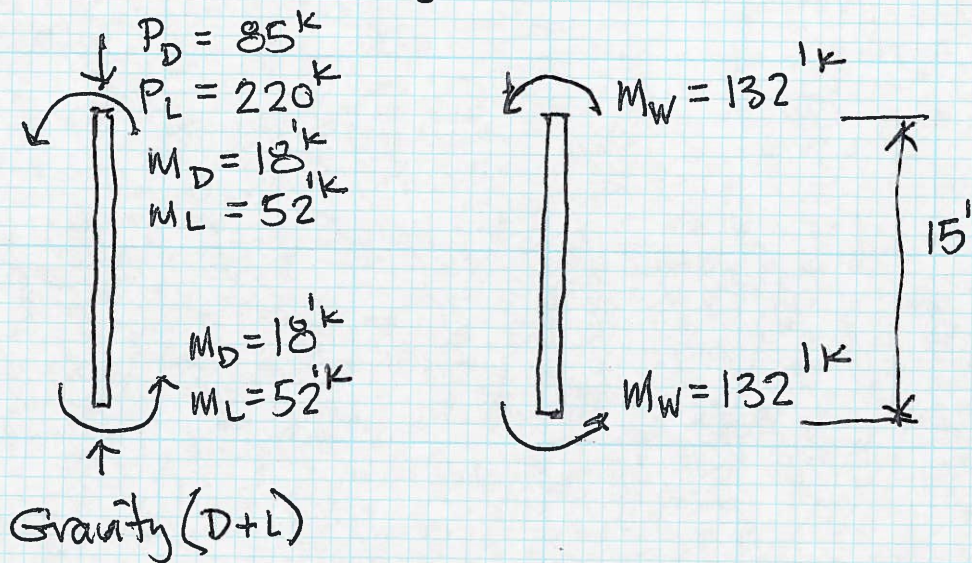 P_D = 85^k
P_L = 220^k
M_D = 18'^k
M_L = 52'^k
M_D = 18'^k
M_L = 52'^k
Gravity (D+L)
M_W = 132'^k
M_W = 132'^k
15'